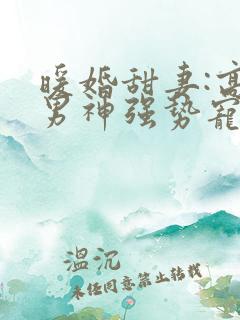 暖婚甜妻:高
男神强势宠
温沉
未经同意禁止转载